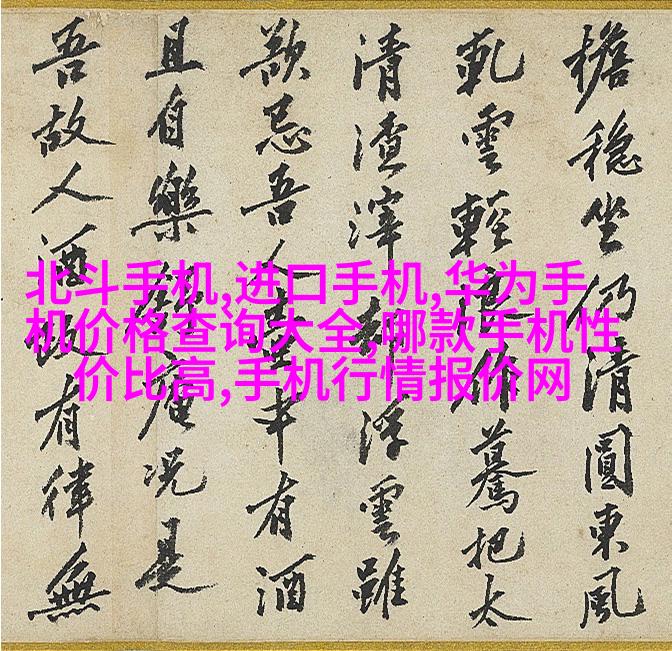 北斗手机,进口手机,华为手
机价格查询大全,哪款手机性
价比高,手机行情报价网
檐穩坐仍清圓東風
軋雲輕驀把太
清渣滓却浮雲雖
歎忌吾人中有酒
且自樂庵况是
吾故人酒既有律無